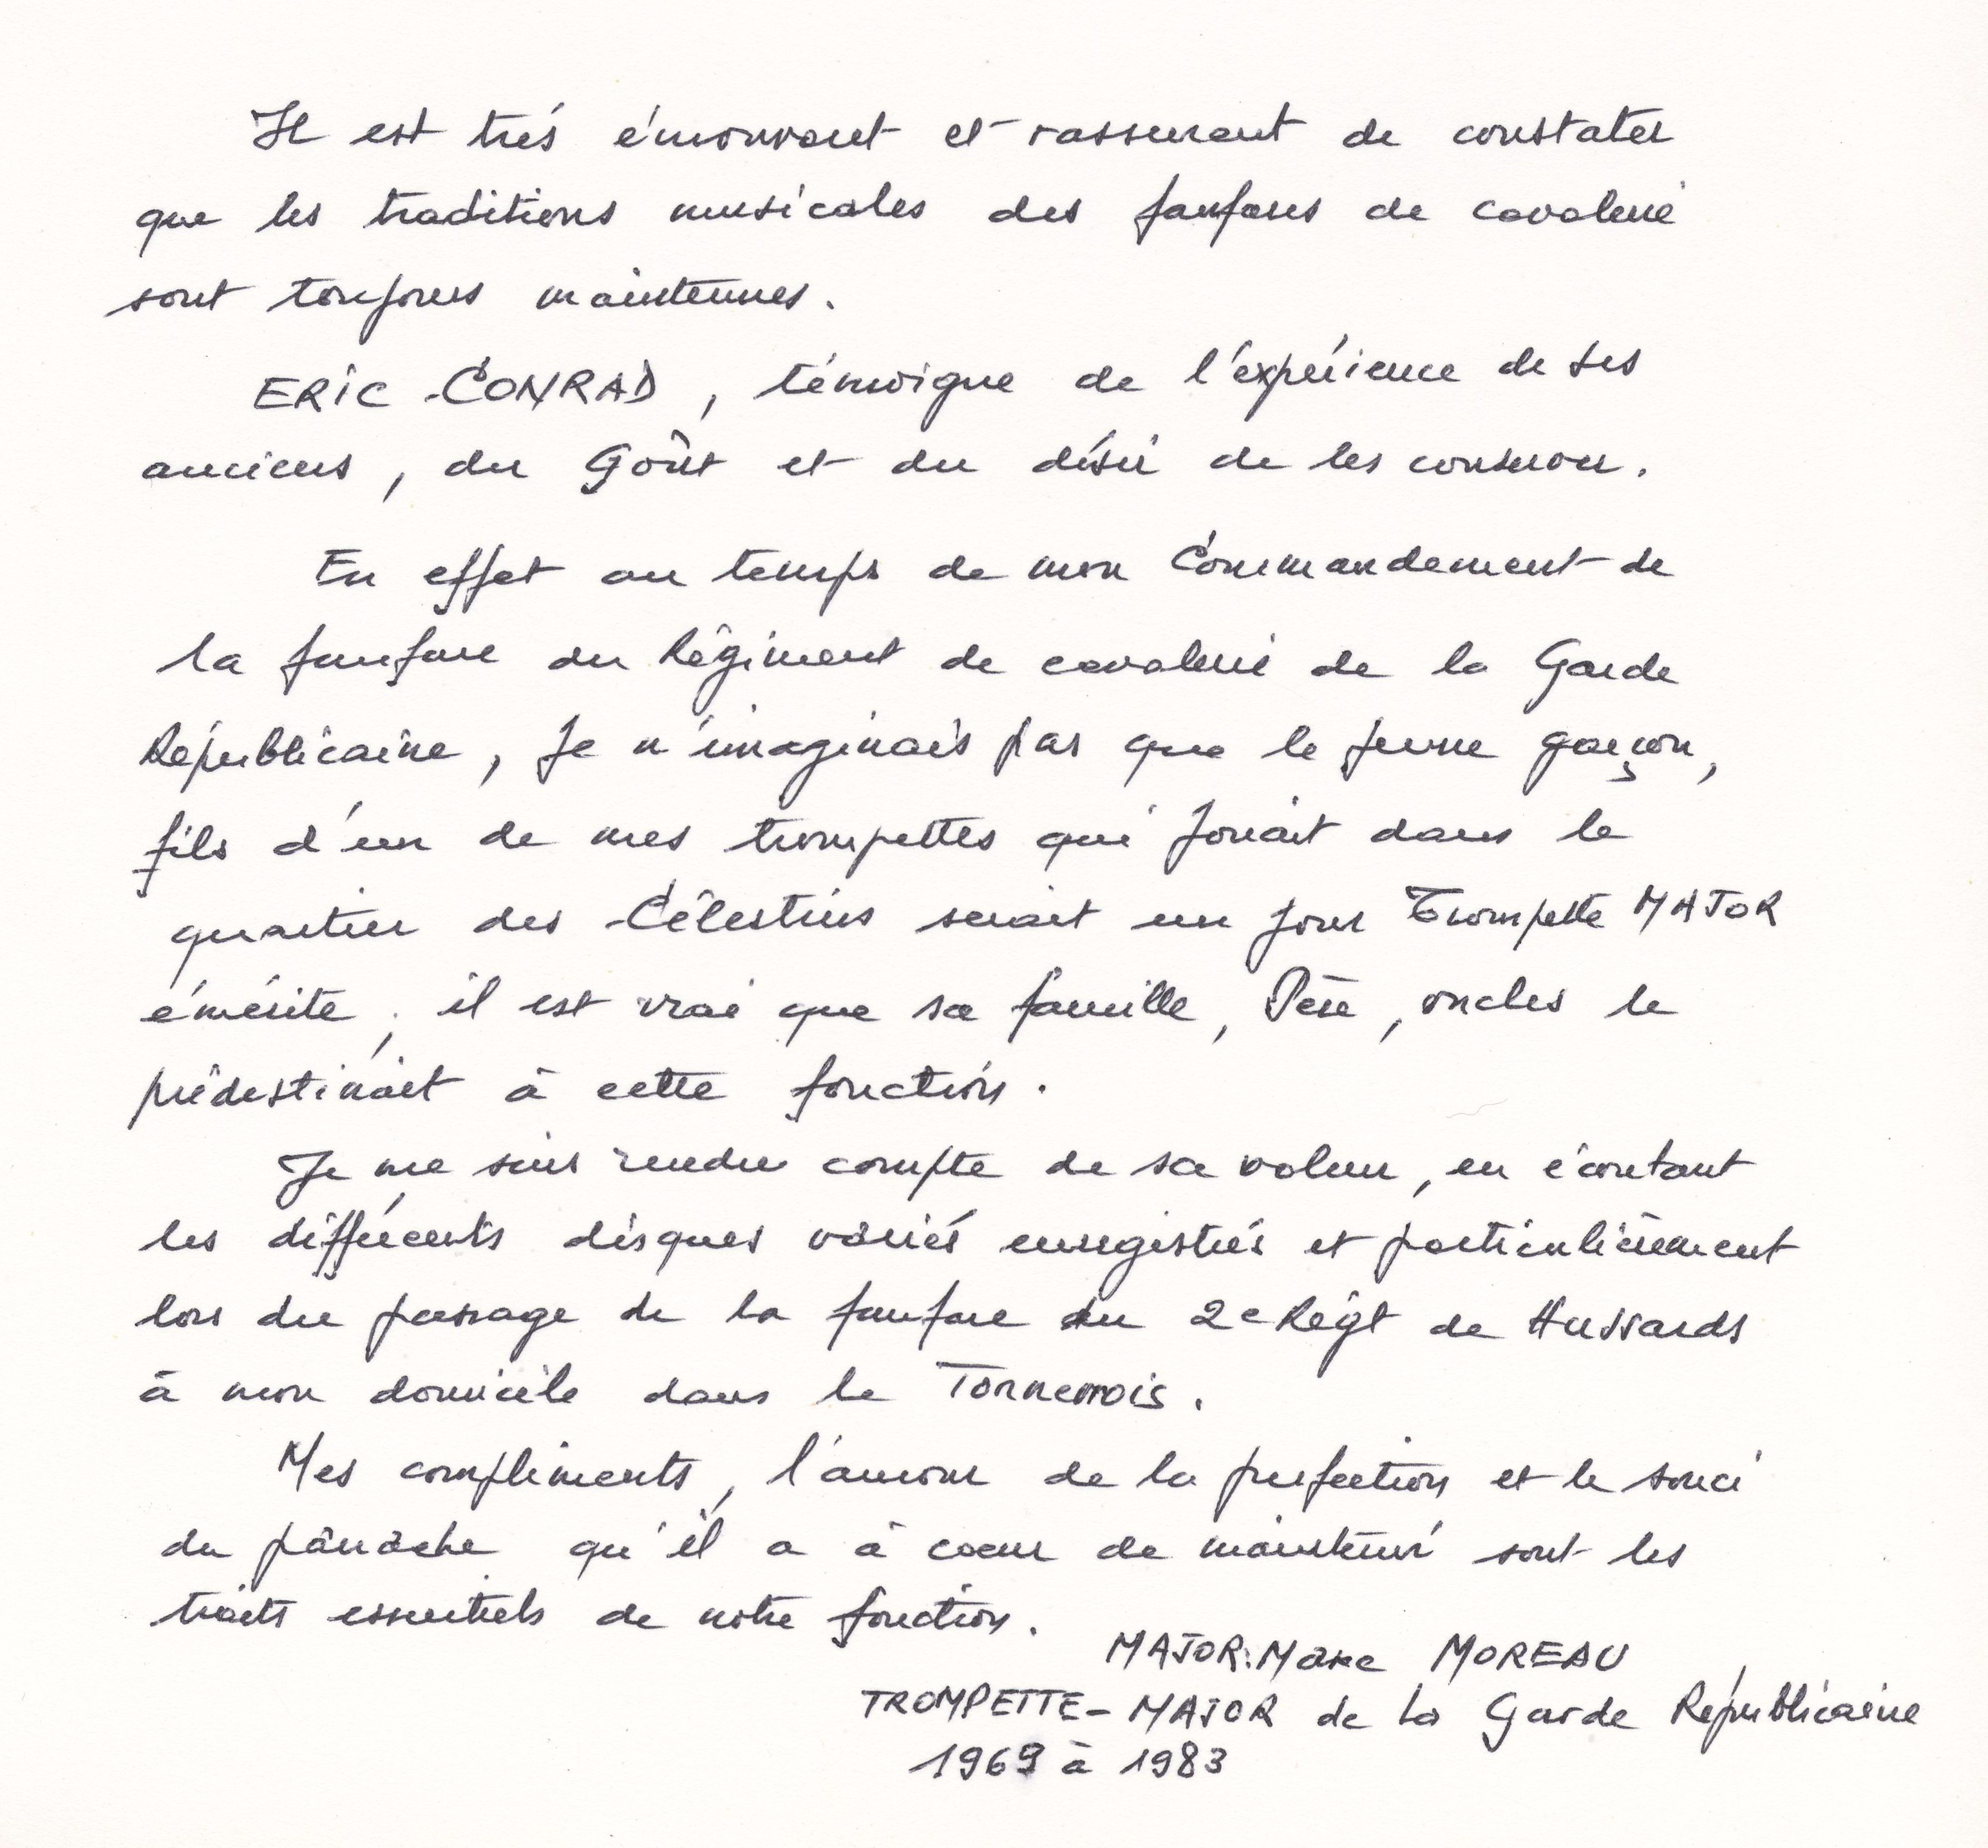 Il est trés émouvant et rassurant de constater
que les traditions musicales des fanfares de cavalerie
sont toujours maintenues.
ERIC CONRAD, témoigne de l'expérience de ses
anciens, du Goût et du désir de les conserver.
En effet au temps de mon Commandement de
la fanfare du Régiment de cavalerie de la Garde
Républicaine, Je n'imaginais pas que le jeune garçon,
fils d'un de mes trompettes qui jouait dans le
quartier des Célestins serait un jour Trompette MAJOR
émérite, il est vrai que sa famille, Père, oncles le
prédestinait à cette fonction.
Je me suis rendu compte de sa valeur, en écoutant
les différents disques variés enregistrés et particulièrement
lors du passage de la fanfare du 2e Régt de Hussards
à mon domicile dans le Tonnerrois.
Mes compliments, l'amour de la perfection et le souci
du panache qu'il a à coeur de maintenir sont les
traits essentiels de notre fonction.
MAJOR: Marc MOREAU
TROMPETTE-MAJOR de la Garde Républicaine
1969 à 1983